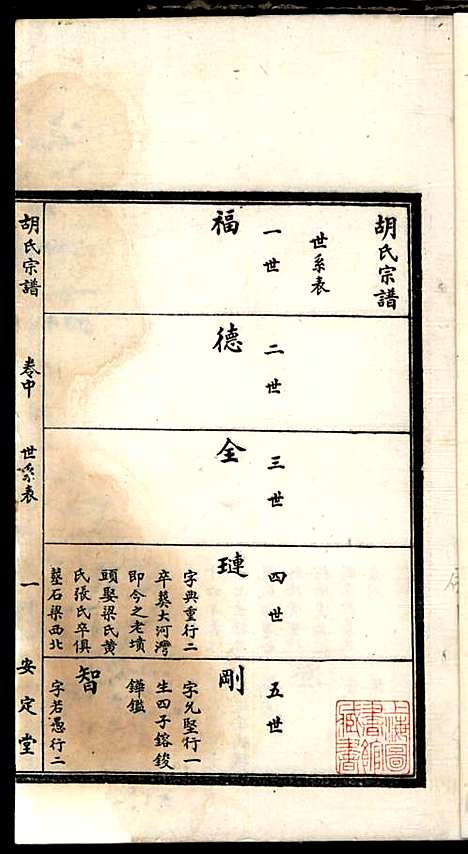 胡氏宗譜
世系表
一世
二世
三世
四世
五世
福
德
全
璉
字典重行二
卒葬大河灣
即今之老墳
頭娶梁氏黄
氏張氏卒俱
塟石梁西北
剛
字允堅行一
生四子鎔錂
鏵鑑
智
字若愚行二
胡氏宗譜
卷中
世系表
一
安定堂
上海圖
書館
藏書